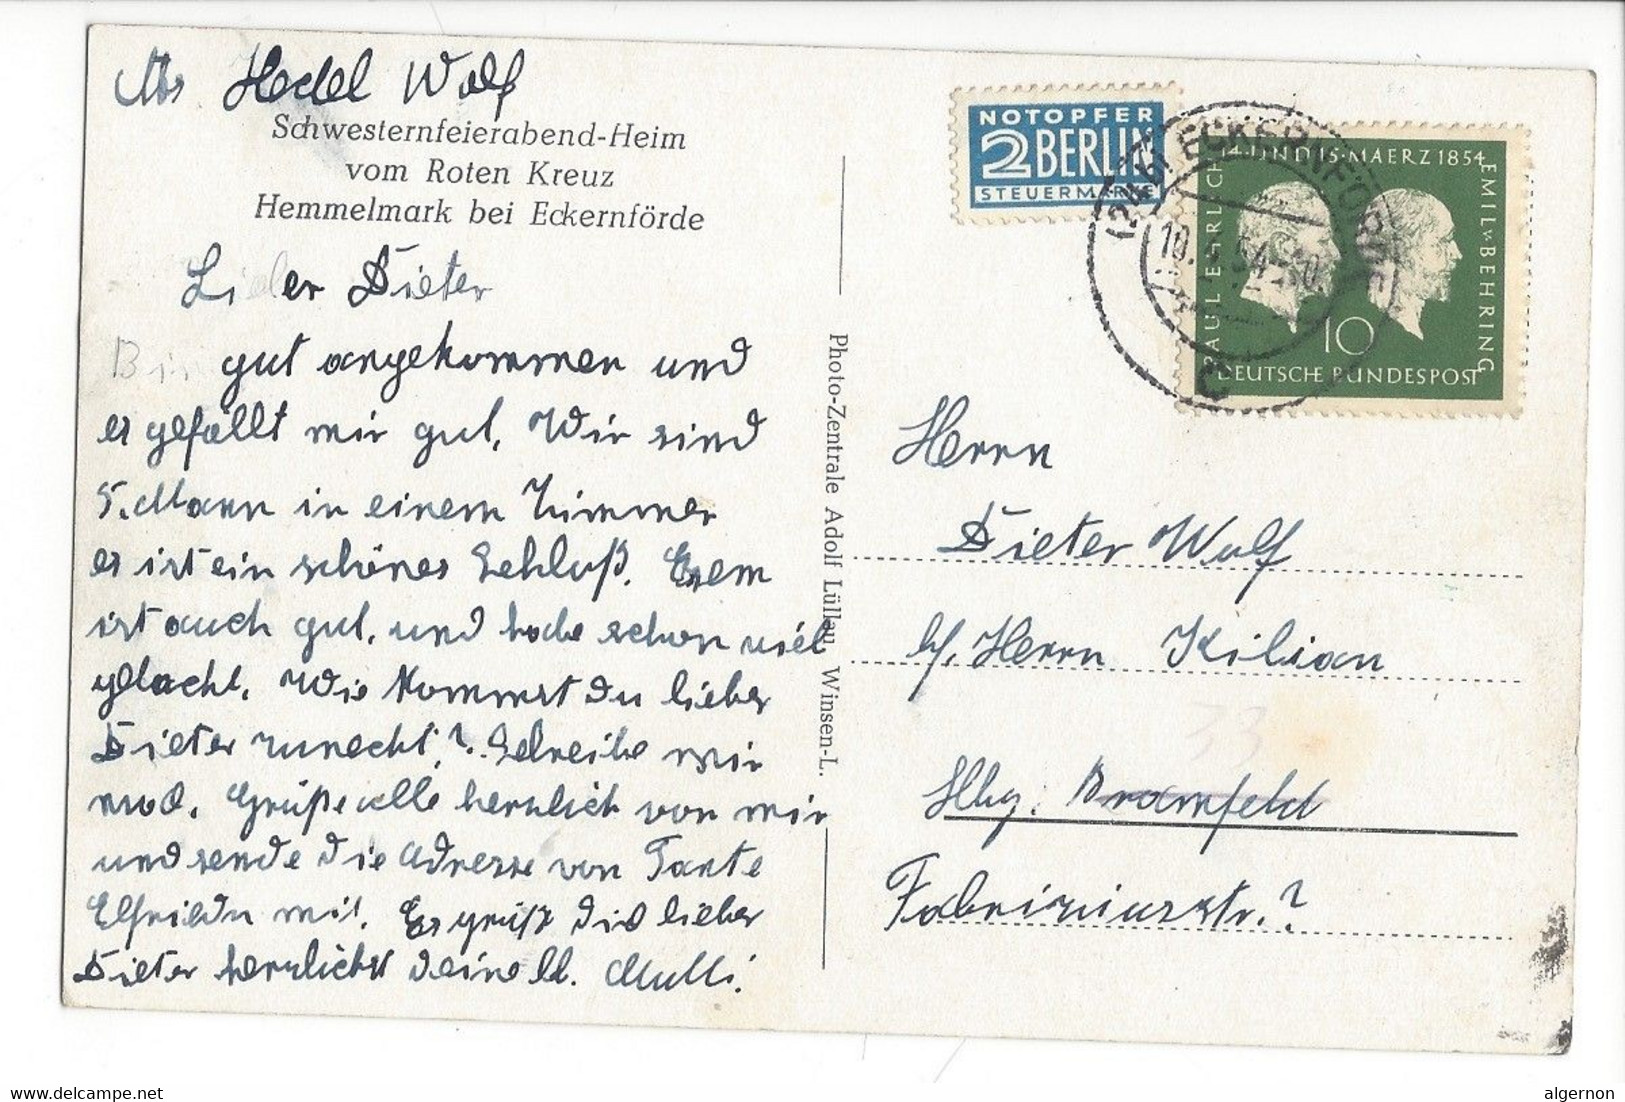 Abs Hedel Wolf
Schwesternfeierabend-Heim
vom Roten Kreuz
Hemmelmark bei Eckernförde
Lieber Dieter
Bin gut angekommen und
es gefällt mir gut. Wir sind
5. Mann in einem Zimmer
es ist ein schönes Schloß. Essen
ist auch gut, und habe schon viel
gelacht. Wie kommst du lieber
Dieter zurecht? Schreibe mir
mal. Grüße alle herzlich von mir
und sende die Adresse von Tante
Elfrieden mit. Es grüßt dich lieber
Dieter herzlichst deine lb. Mutti.
Photo-Zentrale Adolf Lüllau, Winsen-L.
NOTOPFER
2 BERLIN
STEUERMARKE
(24b) ECKERNFÖRDE
C
14. UND 15. MAERZ 1854
PAUL EHRLICH
EMIL v. BEHRING
10
DEUTSCHE BUNDESPOST
Herrn
Dieter Wolf
b/. Herrn Kilian
33
Hbg. Bramfeld
Fabriziusstr.?
algernon